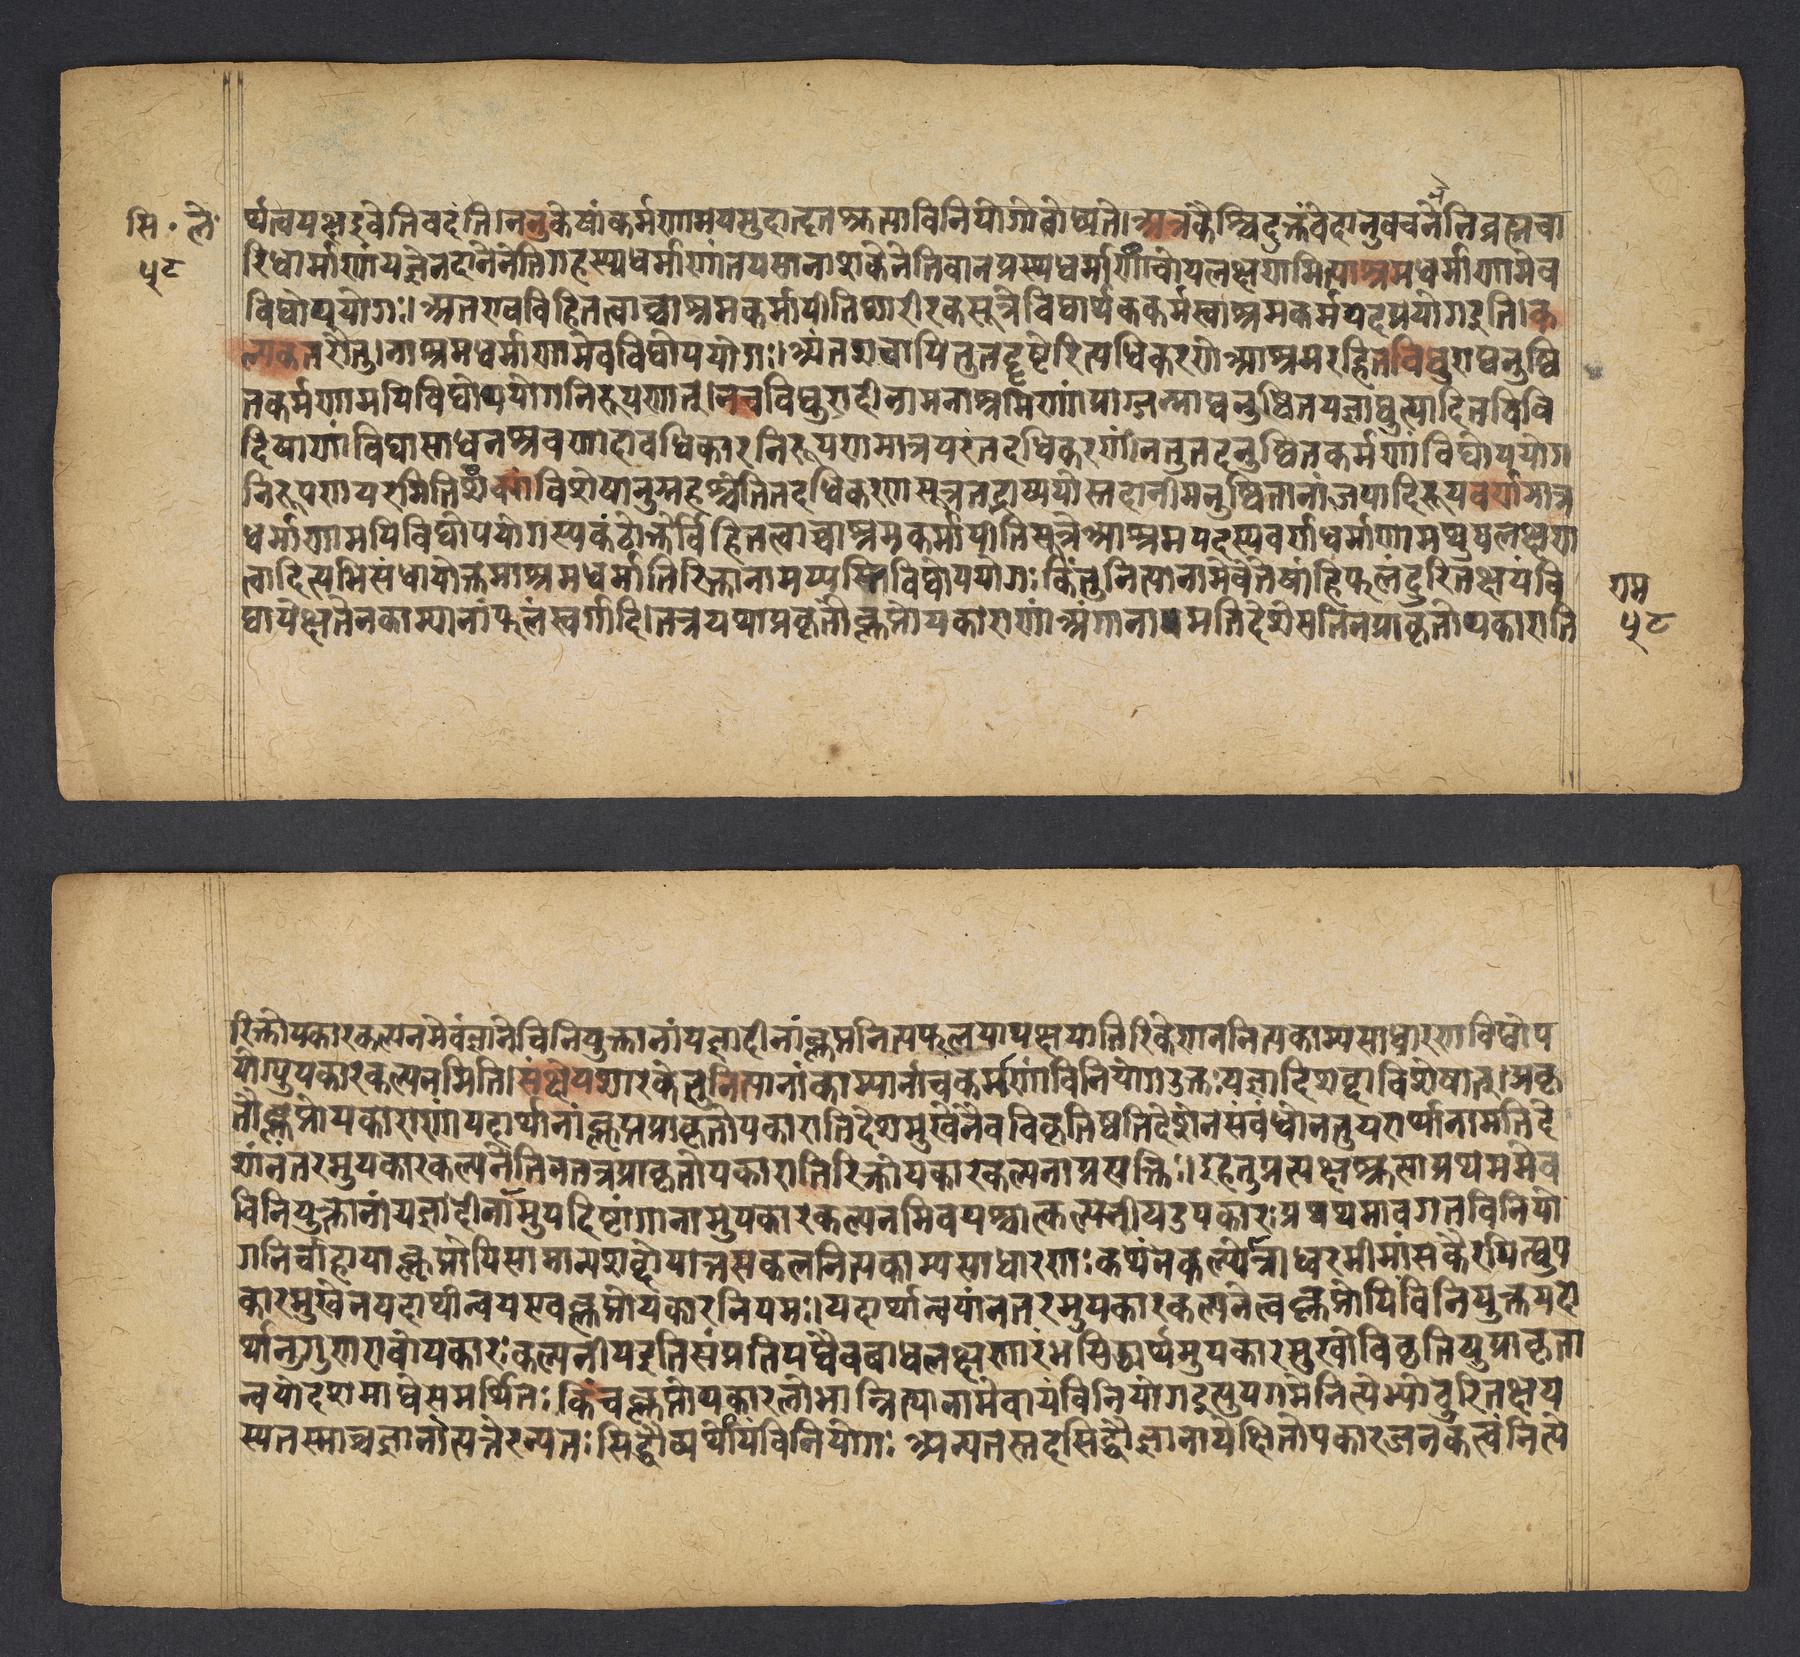 सि॰ ले॰
५८
र्थत्वपक्षइवेतिवदंति।ननुकेषांकर्मणामयमुदाहृतश्रुत्याविनियोगोबोध्यते।अत्रकैश्चिदुक्तंवेदानुवचनेनेतिब्रह्मचा
रिधर्माणांयज्ञेनदानेनेतिगृहस्थधर्माणांतपसानाशकेनेतिवानप्रस्थधर्माणांचोपलक्षणमित्याश्रमधर्माणामेव
विद्योपयोगः।अतएवविहितत्वाच्चाश्रमकर्मापीतिशारीरकसूत्रेविद्यार्थकर्मस्वाश्रमकर्मपदप्रयोगइति।क
ल्पतरौतु।नाश्रमधर्माणामेवविद्योपयोगः।अंतराचापितुतद्दृष्टेरित्यधिकरणेआश्रमरहितविधुराद्यनुष्ठि
तकर्मणामपिविद्योपयोगनिरूपणात्।नचविधुरादीनामनाश्रमिणांप्राग्जन्माद्यनुष्ठितयज्ञाद्युत्पादितविवि
दिषाणांविद्यासाधनश्रवणादावधिकारनिरूपणमात्रपरंतदधिकरणं।नतुतदनुष्ठितकर्मणांविद्योपयोग
निरूपणपरमितिशंक्यं।विशेषानुग्रहश्चेतितदधिकरणसूत्रतद्भाष्ययोस्तदानीमनुष्ठितानांजपादिरूपवर्णमात्र
धर्माणामपिविद्योपयोगस्यकंठोक्तेर्विहितत्वाच्चाश्रमकर्मापीतिसूत्रेआश्रमपदस्यवर्णधर्माणामप्युपलक्षण
त्वादित्यभिसंधायोक्तमाश्रमधर्मातिरिक्तानामप्यस्तिविद्योपयोगः।किंतुनित्यानामेवतेषांहिफलंदुरितक्षयंवि
द्यापेक्षतेनकाम्यानांफलंस्वर्गादि।तत्रयथाप्रकृतौक्लृप्तोपकाराणां।अंगानामतिदेशेसतिनप्राकृतोपकाराति
राम
५८
रिक्तोपकारकल्पनमेवंज्ञानेविनियुक्तानांयज्ञादीनांक्लृप्तनित्यफलपापक्षयातिरेकेणननित्यकाम्यसाधारणविद्योप
योग्युपकारकल्पनमिति।संक्षेपशारकेतुनित्यानांकाम्यानांचकर्मणांविनियोगउक्तःयज्ञादिशब्दाविशेषात्।प्रकृ
तौक्लृप्तोपकाराणांपदार्थानांक्लृप्तप्राकृतोपकारातिदेशमुखेनैवविकृतिष्वतिदेशेनसंबंधोनतुपदार्थानामतिदे
शानंतरमुपकारकल्पनेतिनतत्रप्राकृतोपकारातिरिक्तोपकारकल्पनाप्रसक्तिः।इहतुप्रत्यक्षश्रुत्याप्रथममेव
विनियुक्तानांयज्ञादीनामुपदिष्टांगानामुपकारकल्पनमिवपश्चात्कल्पनीयउपकारःप्रथमावगतविनियो
गनिर्वाहायाक्लृप्तोपिसामान्यशब्दोपात्तसकलनित्यकाम्यसाधारणःकथंनकल्प्येत।ध्वरमीमांसकैरपित्वुप
कारमुखेनपदार्थान्वयएवक्लृप्तोपकारनियमः।पदार्थान्वयानंतरमुपकारकल्पनेत्वक्लृप्तोपिविनियुक्तपदा
र्थानुगुणएवोपकारःकल्पनीयइतिसंप्रतिपद्यैवबाधलक्षणारंभसिद्ध्यर्थमुपकारमुखोविकृतिषुप्राकृता
न्वयोदशमाद्येसमर्थितः।किंचक्लृप्तोपकारलाभान्नित्यानामेवायंविनियोगइत्युपगमेनित्येभ्योदुरितक्षय
स्यतस्माच्चज्ञानोत्पत्तेरन्यतःसिद्धौव्यर्थोयंविनियोगःअन्यतस्तदसिद्धौज्ञानापेक्षितोपकारजनकत्वंनित्ये